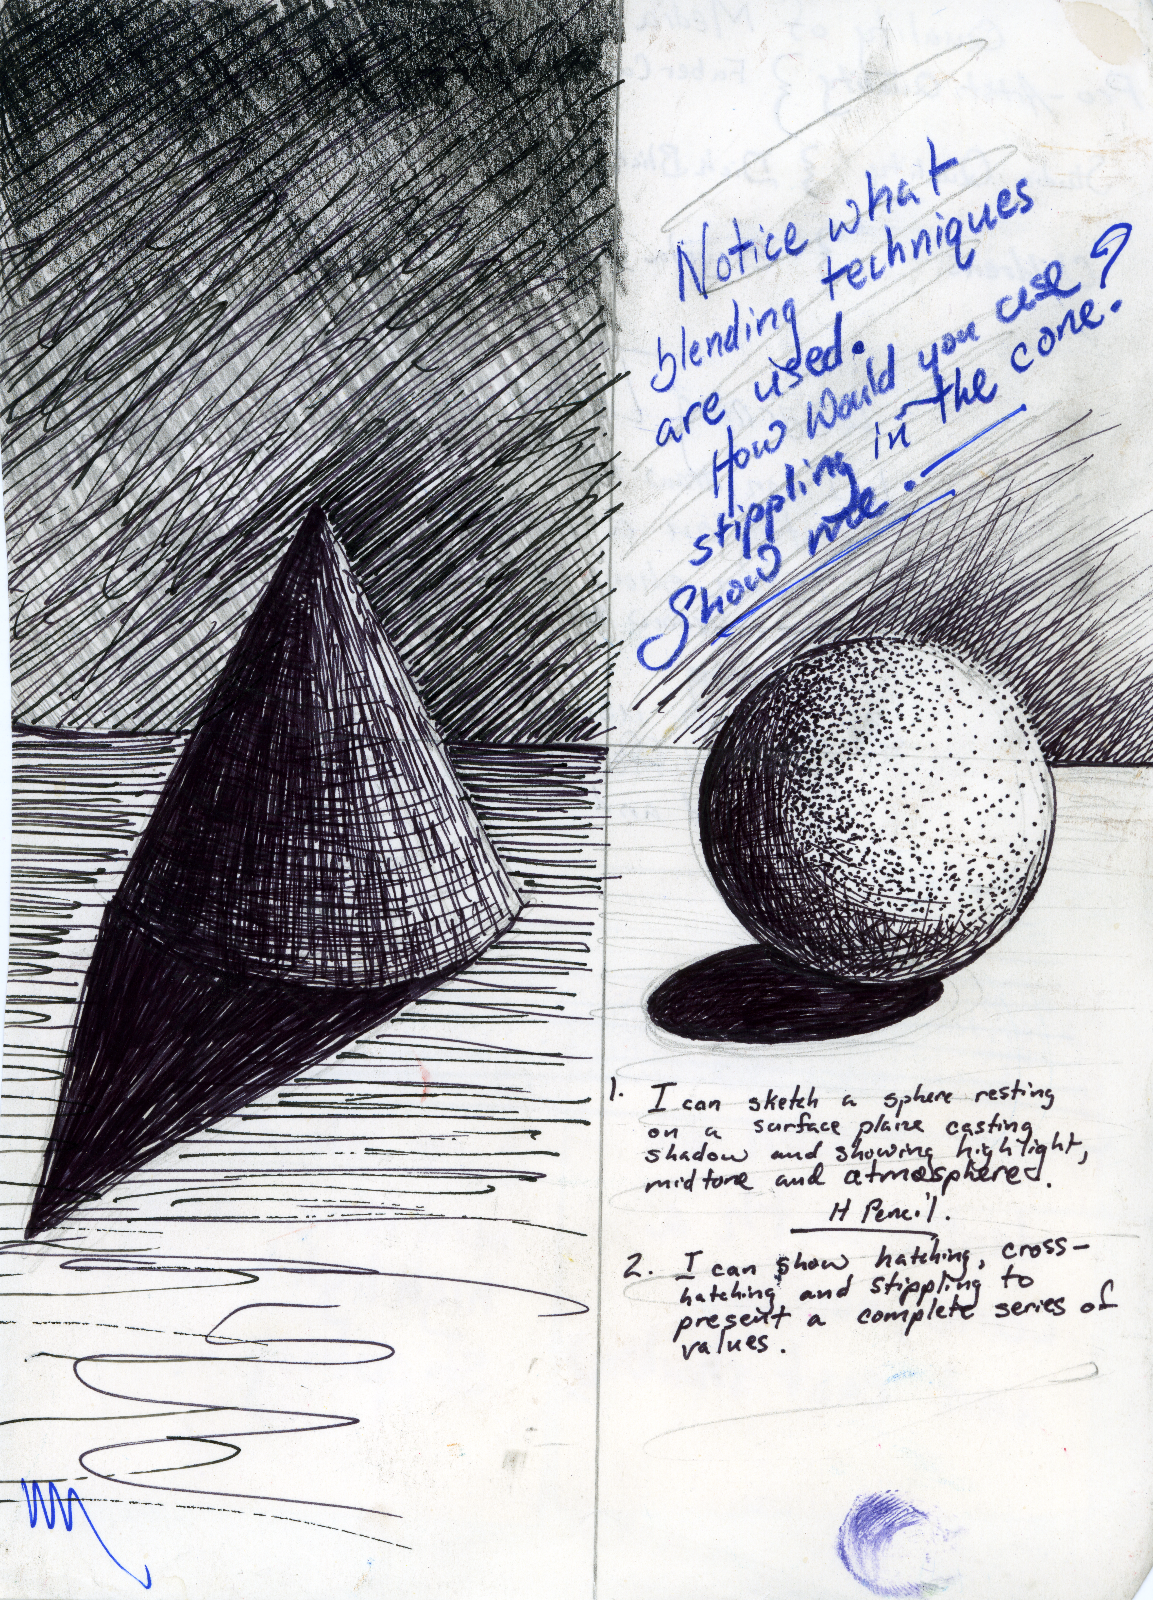 Notice what
blending techniques
are used.
How would you use ?
stippling in the cone.
Show me.
1. I can sketch a sphere resting
on a surface plane casting
shadow and showing highlight,
midtone and atmosphere.
H Pencil.
2. I can show hatching, cross-
hatching and stippling to
present a complete series of
values.